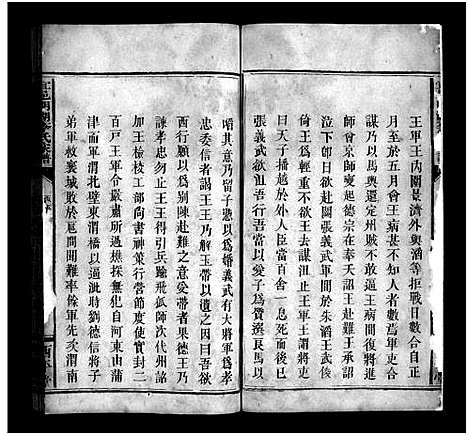 王軍王內關景濟外與滔等拒戰日數合自正
月至於五月會王病甚不知人者數焉軍吏合
謀乃以馬輿還定州賊不敢逼王病閒復將
師會京師變起德宗在奉天詔王赴難王承詔
泣下卽日欲赴難張義武軍閒於朱滔王武俊
倚王爲輕重不欲王去謀沮止王王土謂將吏
曰天子播越於外人臣當百舍一息死而後已
張義武欲沮吾行吾當以愛子爲質選良馬以
啗其意乃留子憑以爲婚義武有大將軍爲孝
忠委信者謁王王乃解玉帶以遺之因曰吾欲
西行願以爲別陳赴難之意受帶者果德王乃
諫孝忠勿止王王得引兵踰飛狐師次代州詔
加王檢校工部尚書神策行營節度使實封二
百戸王軍令嚴肅所過樵採無犯自河東由蒲
津而軍渭北壁東渭橋以逼泚時劉德信將子
弟軍救襄城敗於扈閒閒難率餘軍先次渭南